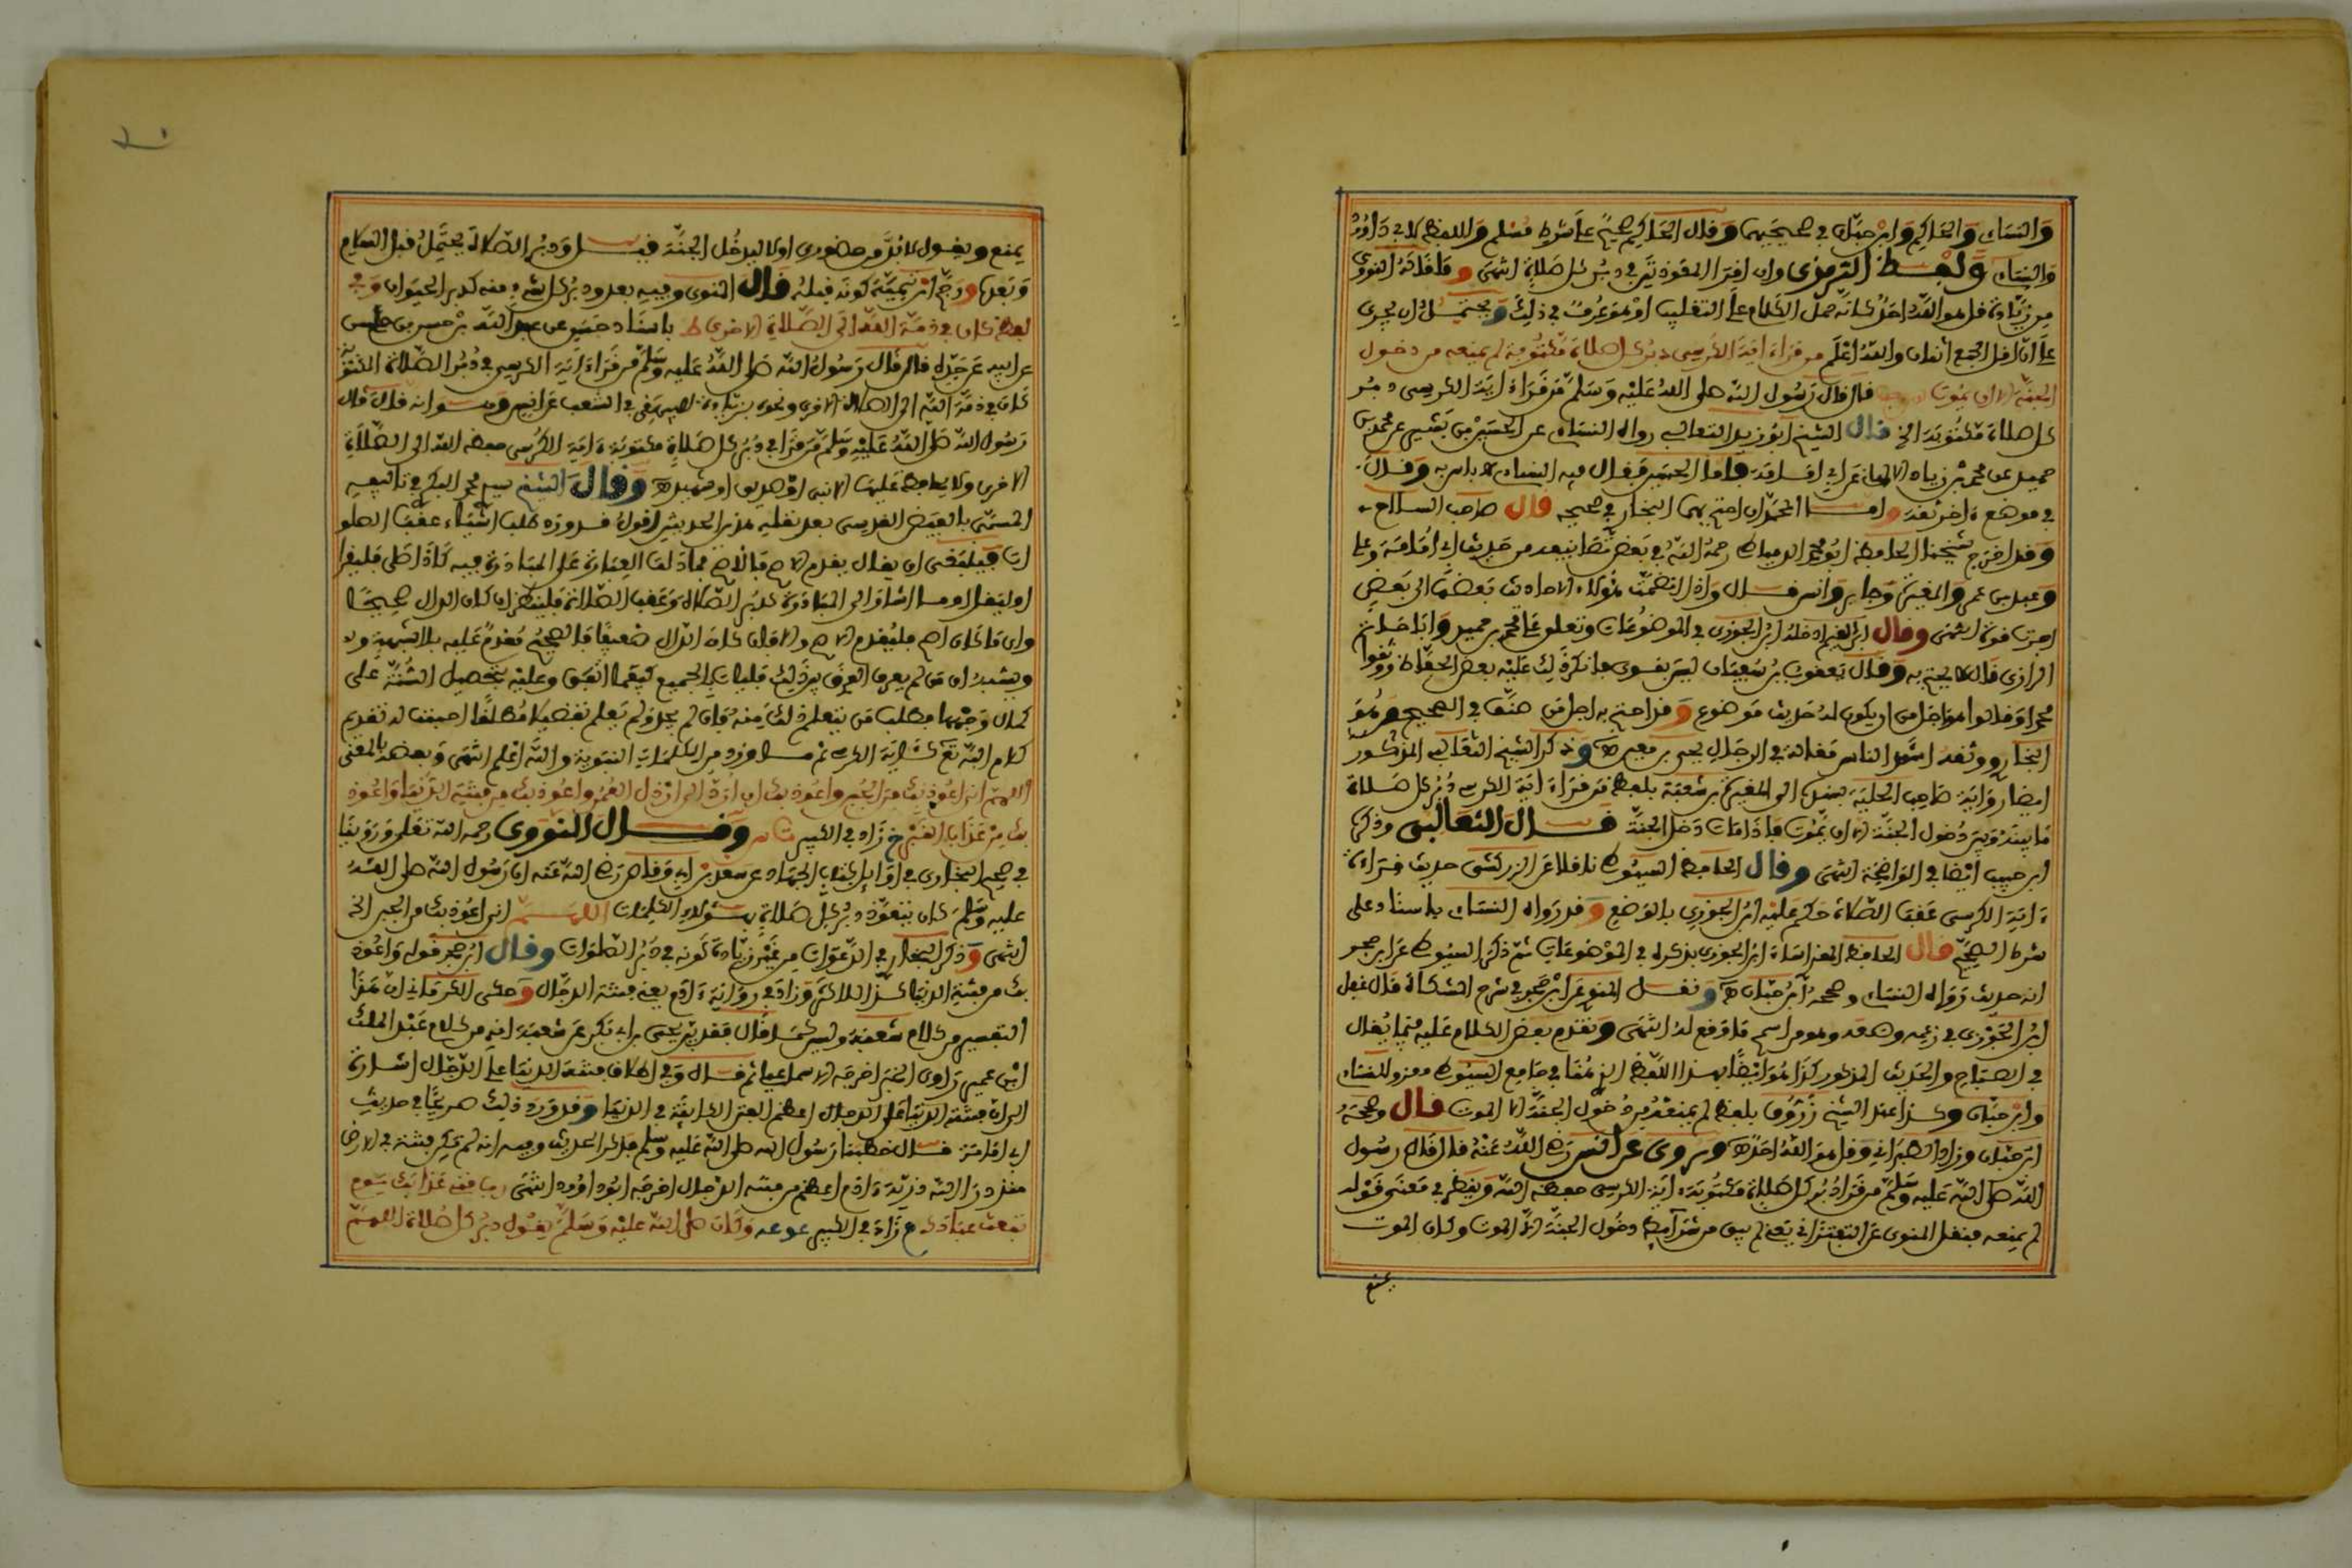 والنساءي والحاكم وابن حبان في صحيحيهما وقال الحاكم صحيح على شرط مسلم واللفظ لابي داوود
والنساءي ولفظ الترمذي وان اقرأ المعوذتين في دبر كل صلاة انتهى وما قاله النووي
من زيادة قل هو الله احد كانه حمل الكلام على التغليب او هو عرف في ذلك ويحتمل ان يجري
على ان اقل الجمع اثنان والله اعلم من قراءة اية الكرسي دبر كل صلاة مكتوبة لم يمنعه من دخول
الجنة الا ان يموت قال قال رسول الله صلى الله عليه وسلم من قراءة اية الكرسي دبر
كل صلاة مكتوبة الخ قال الشيخ ابو زيد الثعالبي رواه النساءي عن الحسين بن بشير عن محمد بن
حميد عن محمد بن زياد الالهاني عن ابي امامة فاما الحسين فقال فيه النساءي لا باس به وقال
في موضع ءاخر ثقة واما المحمدان احتج بهما البخاري في صحيحه قال صاحب السلاح
وقد اخرج شيخنا الحافظ ابو محمد الدمياطي رحمه الله في بعض تصانيفه من حديث ابي امامة وعلي
وعبد بن عمر والمغيرة وجابر وانس قال واذا انضمت هؤلاء الاحاديث بعضها الى بعض
احدثت قوة انتهى وقال ابن القيم ادخله ابن الجوزي في الموضوعات وتعلق على محمد بن حميد وابا حاتم
الرازي قال لا يحتج به وقال يعقوب بن سفيان ليس بقوي وانكر ذلك عليه بعض الحفاظ ووثقوا
محمدا وقالوا هو اجل من ان يكون له حديث موضوع وقد احتج به اجل من صنف في الصحيح وهو
البخاري ووثقه اشد الناس مقالة في الرجال يحيى بن معين وذكر الشيخ الثعالبي المذكور
ايضا رواية صاحب الحلية بسنده الى المغيرة بن شعبة بلفظ من قراءة اية الكرسي دبر كل صلاة
ما بينه وبين دخول الجنة الا ان يموت فاذا مات دخل الجنة قال الثعالبي وذكره
ابن حبيب ايضا في الواضحة انتهى وقال الحافظ السيوطي ناقلا عن الزركشي حديث قراءة
ءاية الكرسي عقب الصلاة حكم عليه ابن الجوزي بالوضع وقد رواه النساءي باسناد على
شرط الصحيح قال الحافظ المزي اساء ابن الجوزي بذكره في الموضوعات ثم ذكر السيوطي عن ابن حجر
انه حديث رواه النساءي وصححه ابن حبان ونقل المنوي عن ابن حجر في شرح المشكاة قال غفل
ابن الجوزي في زعمه وضعه وهو من اسمج ما وقع له انتهى وتقدم بعض الكلام عليه فيما يقال
في الصباح والحديث المذكور كذا هو ايضا بهذا اللفظ الذي هنا في جامع السيوطي معزو للنساءي
وابن حبان وكذا عند الشيخ زروق بلفظ لم يمنعه من دخول الجنة الا الموت قال وصححه
ابن حبان وزاد الطبراني وقل هو الله احد وروي عن انس رضي الله عنه قال قال رسول
الله صلى الله عليه وسلم من قرا دبر كل صلاة مكتوبة ءاية الكرسي حفظه الله وينظر في معنى قوله
لم يمنعه فنقل المنوي عن التفتزاني يعني لم يبق من شرائط دخول الجنة الا الموت وكان الموت
يمنع
يمنع ويقول لا بد من حضوري اولا ليدخل الجنة قيل ودبر الصلاة يحتمل قبل السلام
وبعده ورجح ابن تيمية كونه قبله قال المنوي وفيه بعد ودبر كل شيء منه كدبر الحيوان وفي
لفظ كان في ذمة الله الى الصلاة الاخرى ط باسناد حسن عن عبد الله بن حسن بن حسن
عن ابيه عن جده قال قال رسول الله صلى الله عليه وسلم من قراءة اية الكرسي في دبر الصلاة المكتوبة
كان في ذمة الله الى الصلاة الاخرى ونحوه بزيادة للبيهقي في الشعب عن انس وسوانه قال قال
رسول الله صلى الله عليه وسلم من قرا في دبر كل صلاة مكتوبة ءاية الكرسي حفظه الله الى الصلاة
الاخرى ولا يحافظ عليها الا نبي او صديق او شهيد وقال الشيخ سيدي محمد البكري في تاليفه
المسمى بالفيض القدسي بعد نقله هذين الحديثين اقول قد ورد طلب اشياء عقب الصلو
ات فينبغي ان يقال يقدم الاصح فالاصح مما دلت العبارة على المبادرة فيه كاذا صلى فليقرا
او ليقل او ما اشار الى المبادرة كدبر الصلاة وعقب الصلاة فلينظر ان كان الدال صحيحا
وان ما كان اصح فليقدم الاصح والا فان كان الدال ضعيفا فالصحيح مقدم عليه بلا شبهة ولا
ويشبه ان من لم يعرف الفرق بين ذلك فليات بالجميع كيفما اتفق وعليه بتحصيل السنة على
كمال وجهها بطلب من يتعلم ذلك منه فان لم يجد ولم يعلم تفضيلا مطلقا احببت له تقديم
كلام الله تعلى كاية الكرسي ثم ما ورد من الكلمات النبوية والله اعلم انتهى وبعضه بالمعنى
اللهم اني اعوذ بك من الجبن واعوذ بك ان ارد الى ارذل العمر واعوذ بك من فتنة الدنيا واعوذ
بك من عذاب القبر خ زاد في الكبير ت ن وقال النووي رحمه الله تعلى وروينا
في صحيح البخاري في اوائل كتاب الجهاد عن سعد بن ابي وقاص رضي الله عنه ان رسول الله صلى الله
عليه وسلم كان يتعوذ دبر كل صلاة بهؤلاء الكلمات اللهم اني اعوذ بك من الجبن الخ
انتهى وذكر البخاري في الدعوات من غير زيادة كونه في دبر الصلوات وقال ابن حجر قوله واعوذ
بك من فتنة الدنيا كذا للاكثر وزاد في رواية ءادم يعني فتنة الدجال وحكى الكرماني ان هذا
التفسير من كلام شعبة وليس كما قال فقد بين يحيى بن ابي بكير عن شعبة انه من كلام عبد الملك
ابن عمير راوي الخبر اخرجه الاسماعيلي ثم قال وفي اطلاق فتنة الدنيا على الدجال اشارة
الى ان فتنة الدجال اعظم الفتن الكائنة في الدنيا وقد ورد ذلك صريحا في حديث
ابي امامة قال خطبنا رسول الله صلى الله عليه وسلم فذكر الحديث وفيه انه لم تكن فتنة في الارض
منذ ذرا الله ذرية ءادم اعظم من فتنة الدجال اخرجه ابو داوود انتهى رب قني عذابك يوم
تبعث عبادك م زاد في الكبير عو عه وكان صلى الله عليه وسلم يقول دبر كل صلاة اللهم